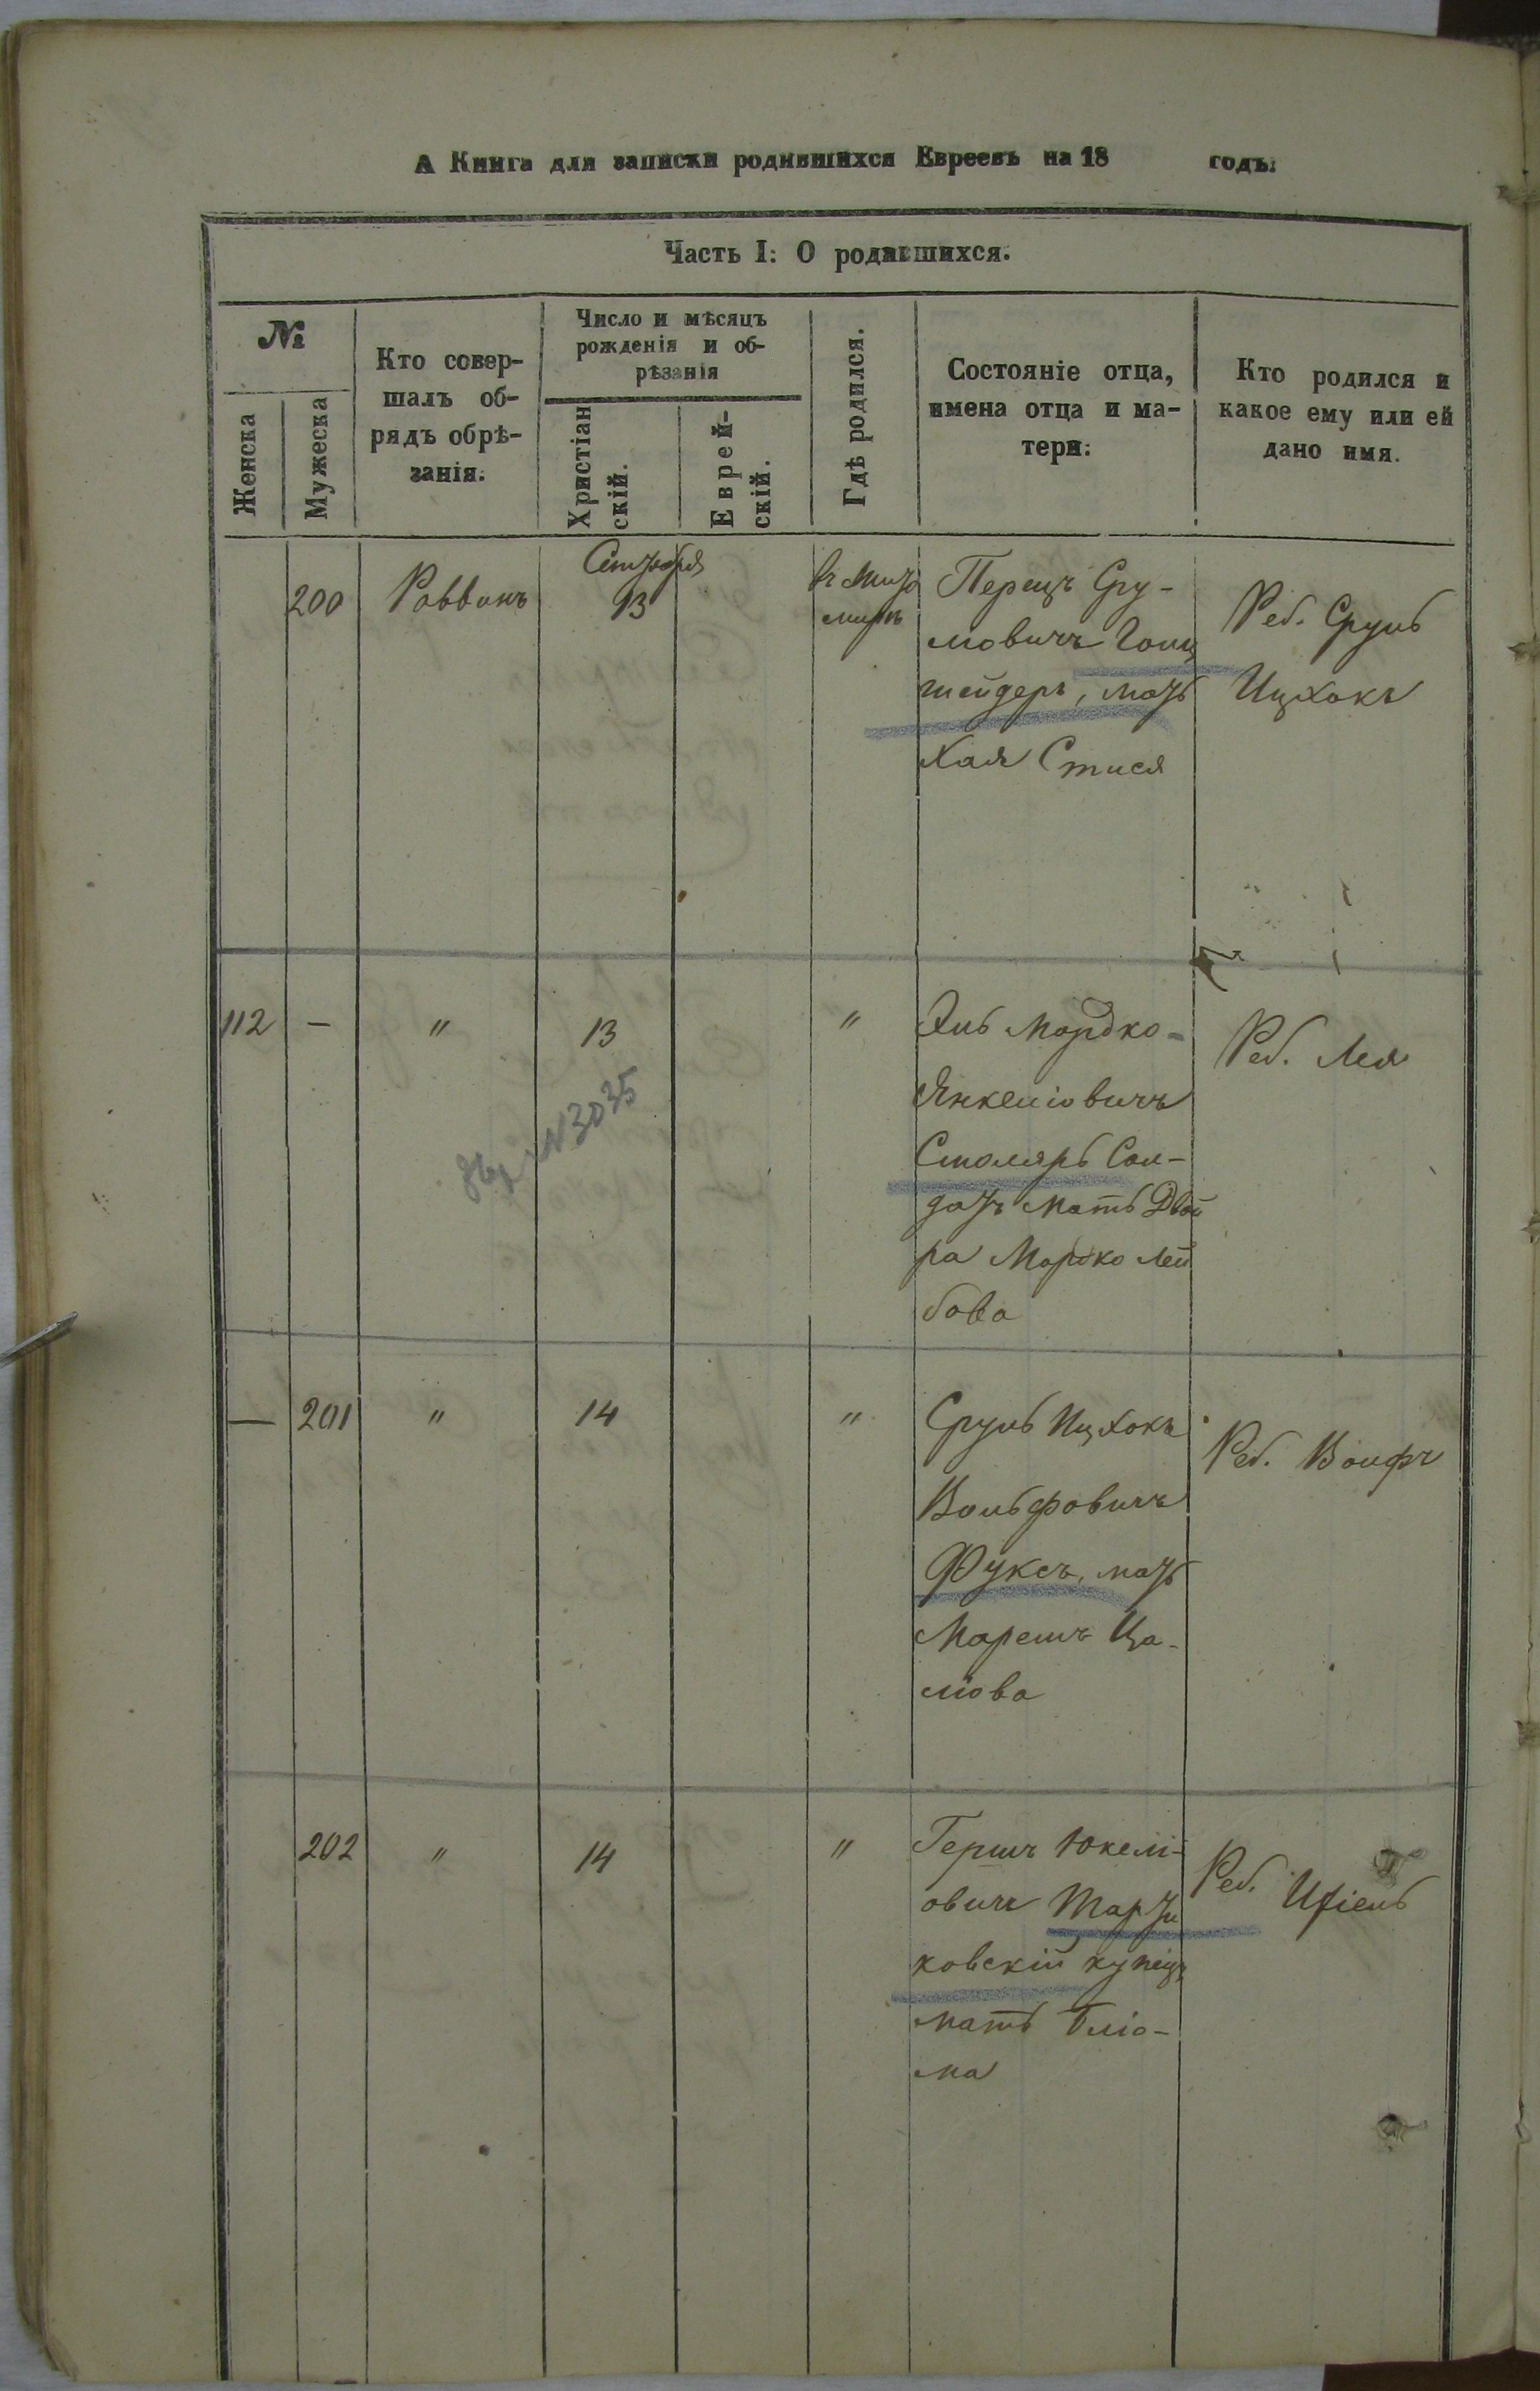 А Книга для записки родившихся Евреевъ на 18 годъ:
Часть I: О родившихся.
№
Женска
Мужеска
Кто совер-
шалъ об-
рядъ обрѣ-
занія.
Число и мѣсяцъ
рожденія и об-
рѣзанія
Христіан
скій.
Еврей-
скій.
Гдѣ родился.
Состояніе отца,
имена отца и ма-
тери:
Кто родился и
какое ему или ей
дано имя.
200
Раввинъ
Сентября
13
въ Жито
мирѣ
Перецъ Сру-
шейдеръ, мать
Хая
Реб. Сруль
Ицхокъ
112
—
"
13
"
Эль Мордко-
Янкеліовичъ
Столяръ Сол-
датъ мать Двой
ра Мордко Лей
бова
Реб. Лея
№ 3035
—
201
"
14
"
Сруль Ицхокъ
Вольфовичъ
Фуксъ, мать
Ца-
лiова
Реб. Волфъ
202
"
14
"
Гершъ Юкелі-
овичъ
ковскій купецъ
мать Блю-
ма
Реб.